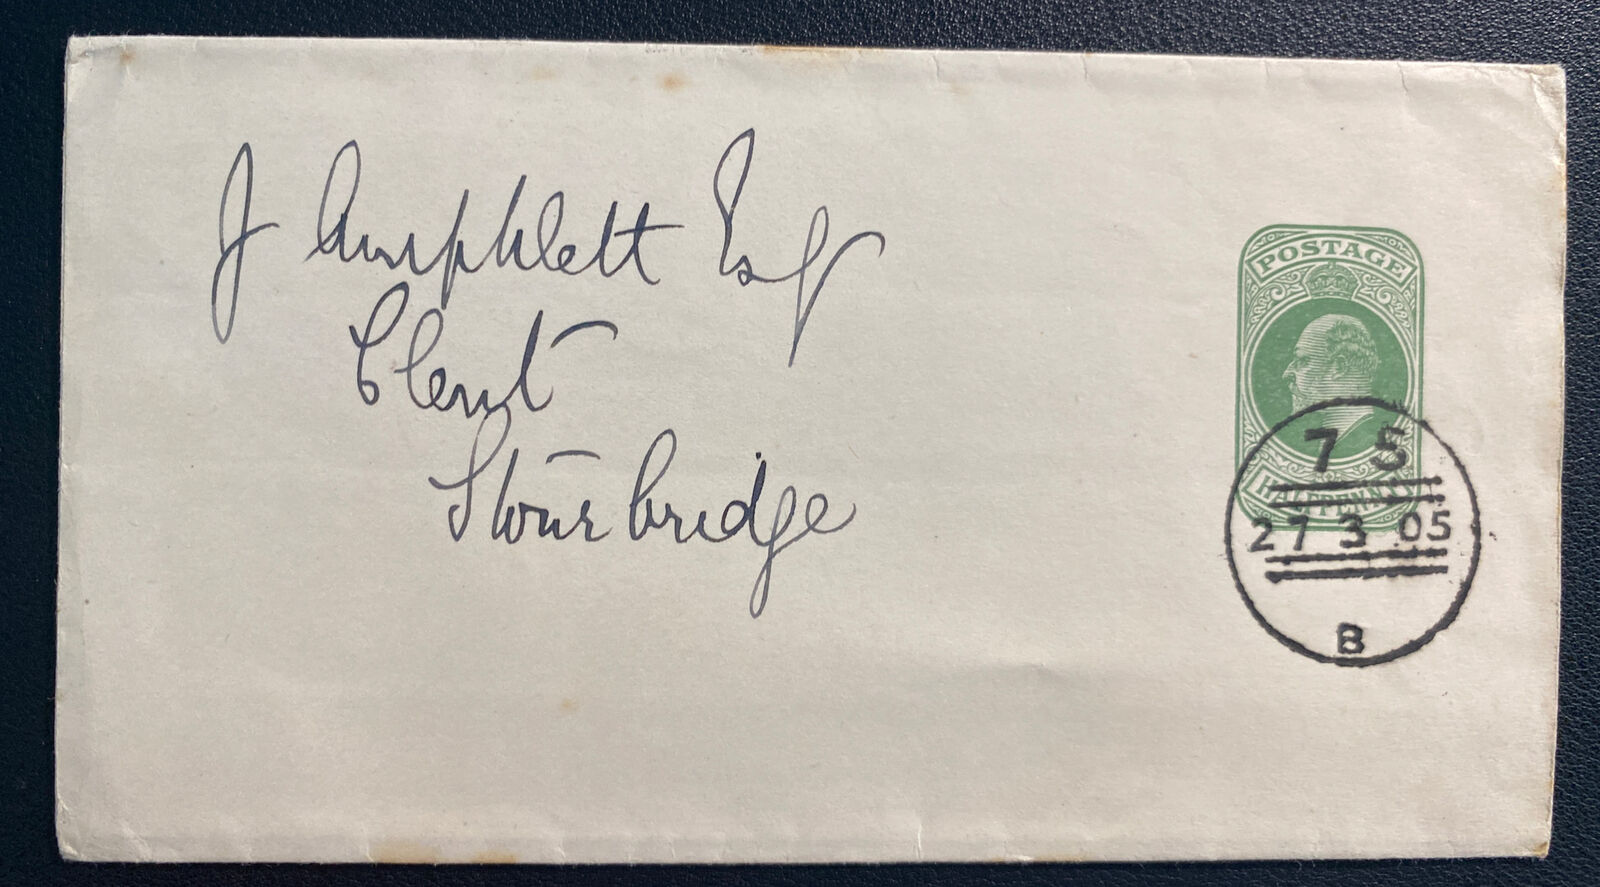 J Amphlett Esq
Clent
Stourbridge
POSTAGE
HALFPENNY
7 5
27 3 05
B